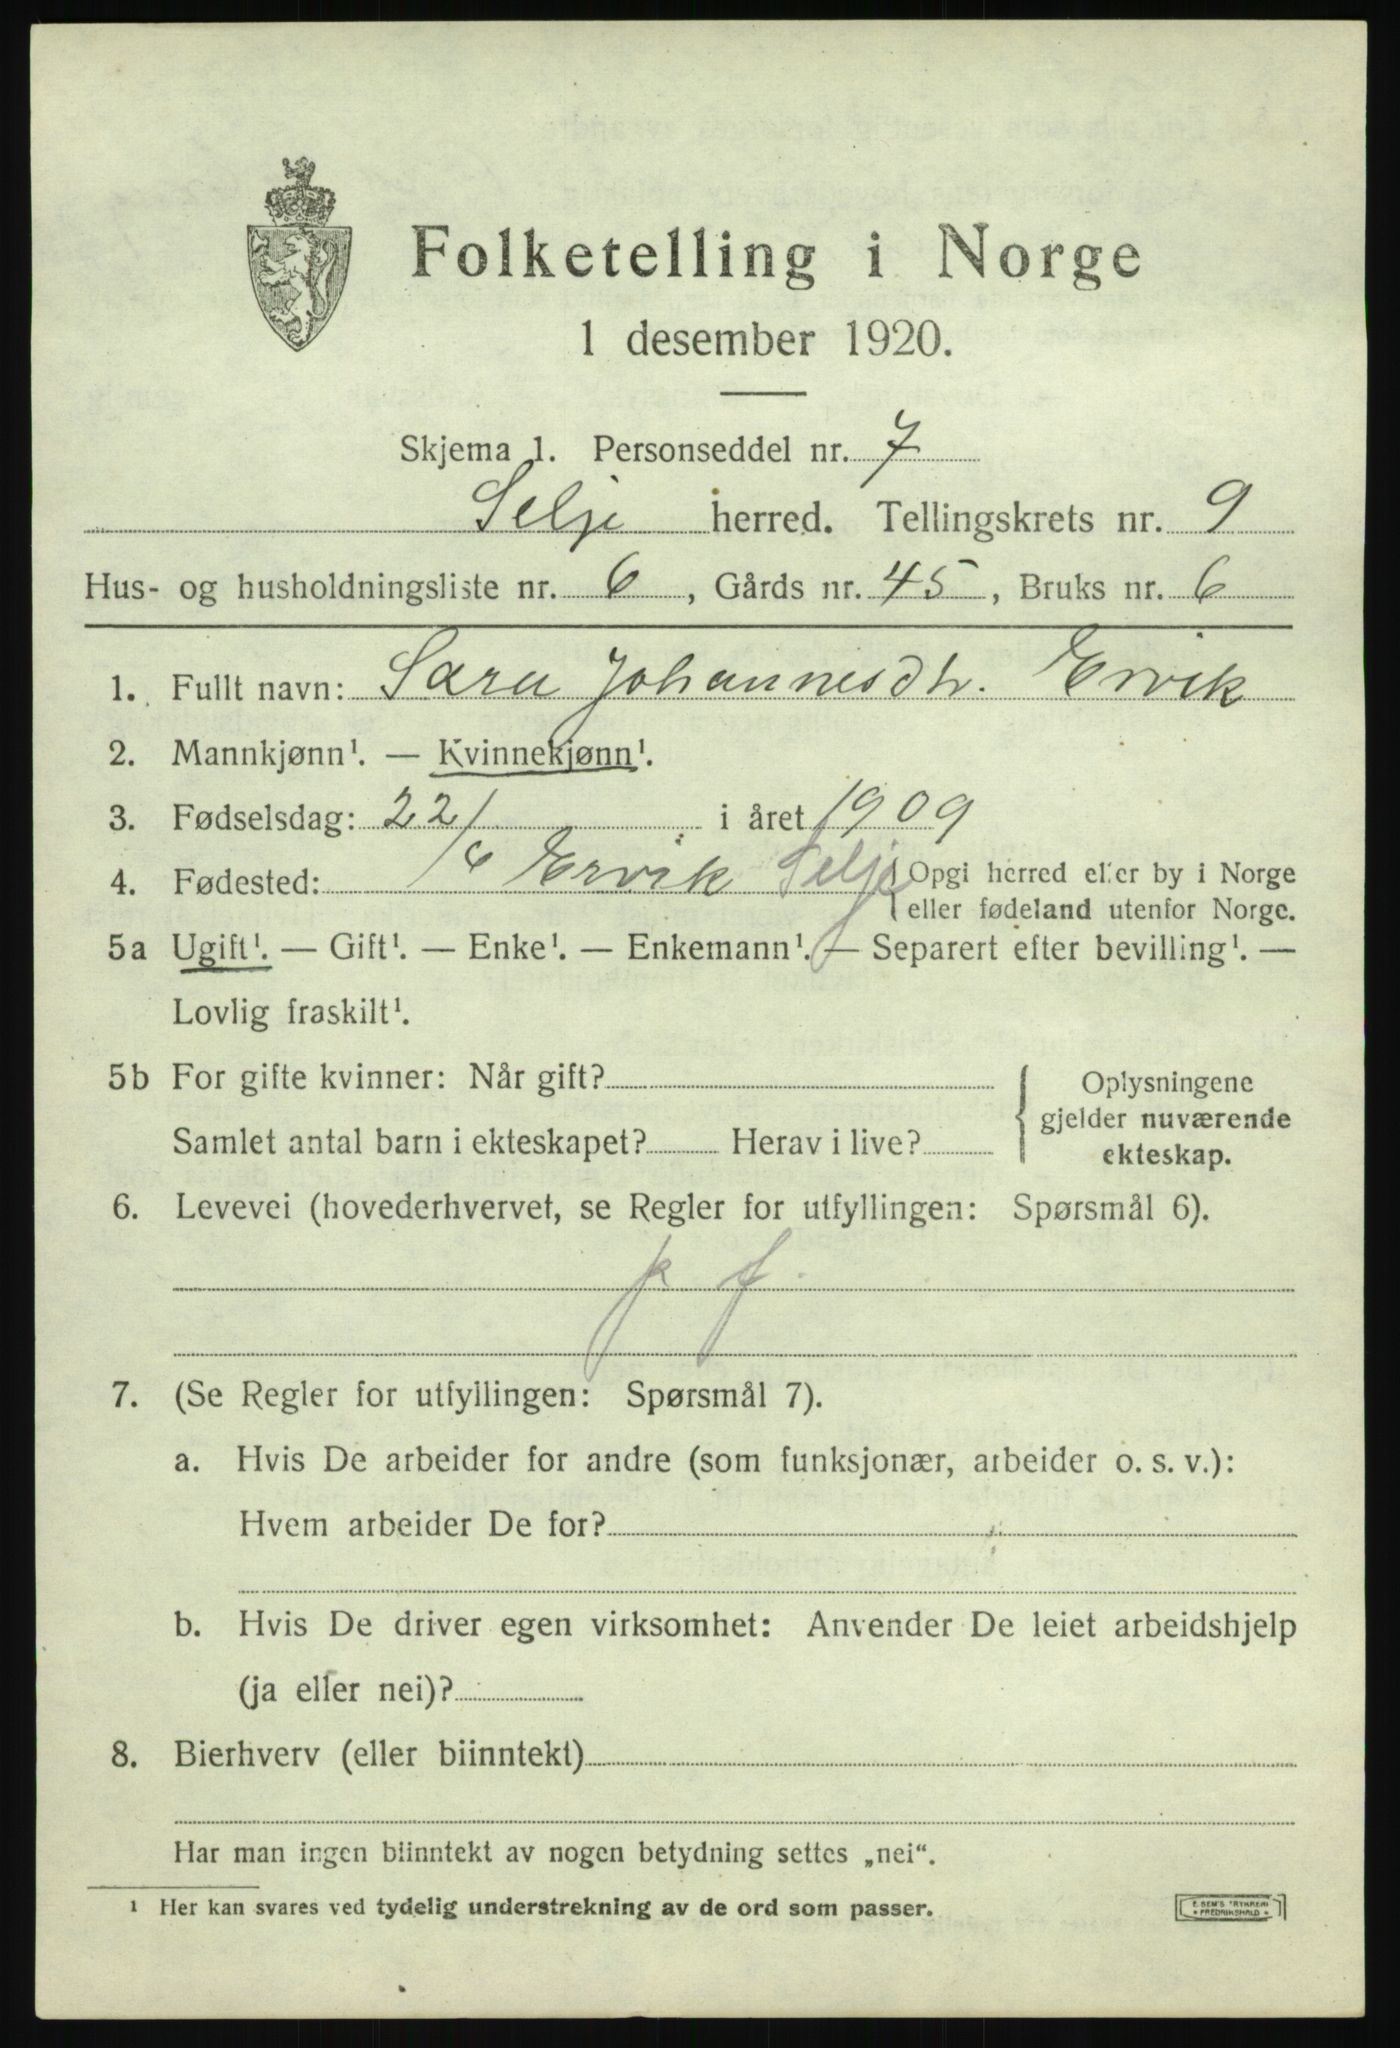 Folketelling i Norge
1 desember 1920.
Skjema 1. Personseddel nr. 7
Selje herred. Tellingskrets nr. 9
Hus- og husholdningsliste nr. 6, Gårds nr. 45, Bruks nr. 6
1. Fullt navn: Sara Johannesdtr. Ervik
2. Mannkjønn¹. — Kvinnekjønn¹.
3. Fødselsdag: 22/6 i året 1909
4. Fødested: Ervik Selje { Opgi herred eller by i Norge
eller fødeland utenfor Norge.
5a Ugift¹. — Gift¹. — Enke¹. — Enkemann¹. — Separert efter bevilling¹. —
Lovlig fraskilt¹.
5b For gifte kvinner: Når gift?
Samlet antal barn i ekteskapet? Herav i live?
{ Oplysningene
gjelder nuværende
ekteskap.
6. Levevei (hovederhvervet, se Regler for utfyllingen: Spørsmål 6).
p f.
7. (Se Regler for utfyllingen: Spørsmål 7).
a. Hvis De arbeider for andre (som funksjonær, arbeider o. s. v.):
Hvem arbeider De for?
b. Hvis De driver egen virksomhet: Anvender De leiet arbeidshjelp
(ja eller nei)?
8. Bierhverv (eller biinntekt)
Har man ingen biinntekt av nogen betydning settes „nei“.
¹ Her kan svares ved tydelig understrekning av de ord som passer.
E. SEM'S TRYKKERI
FREDRIKSHALD